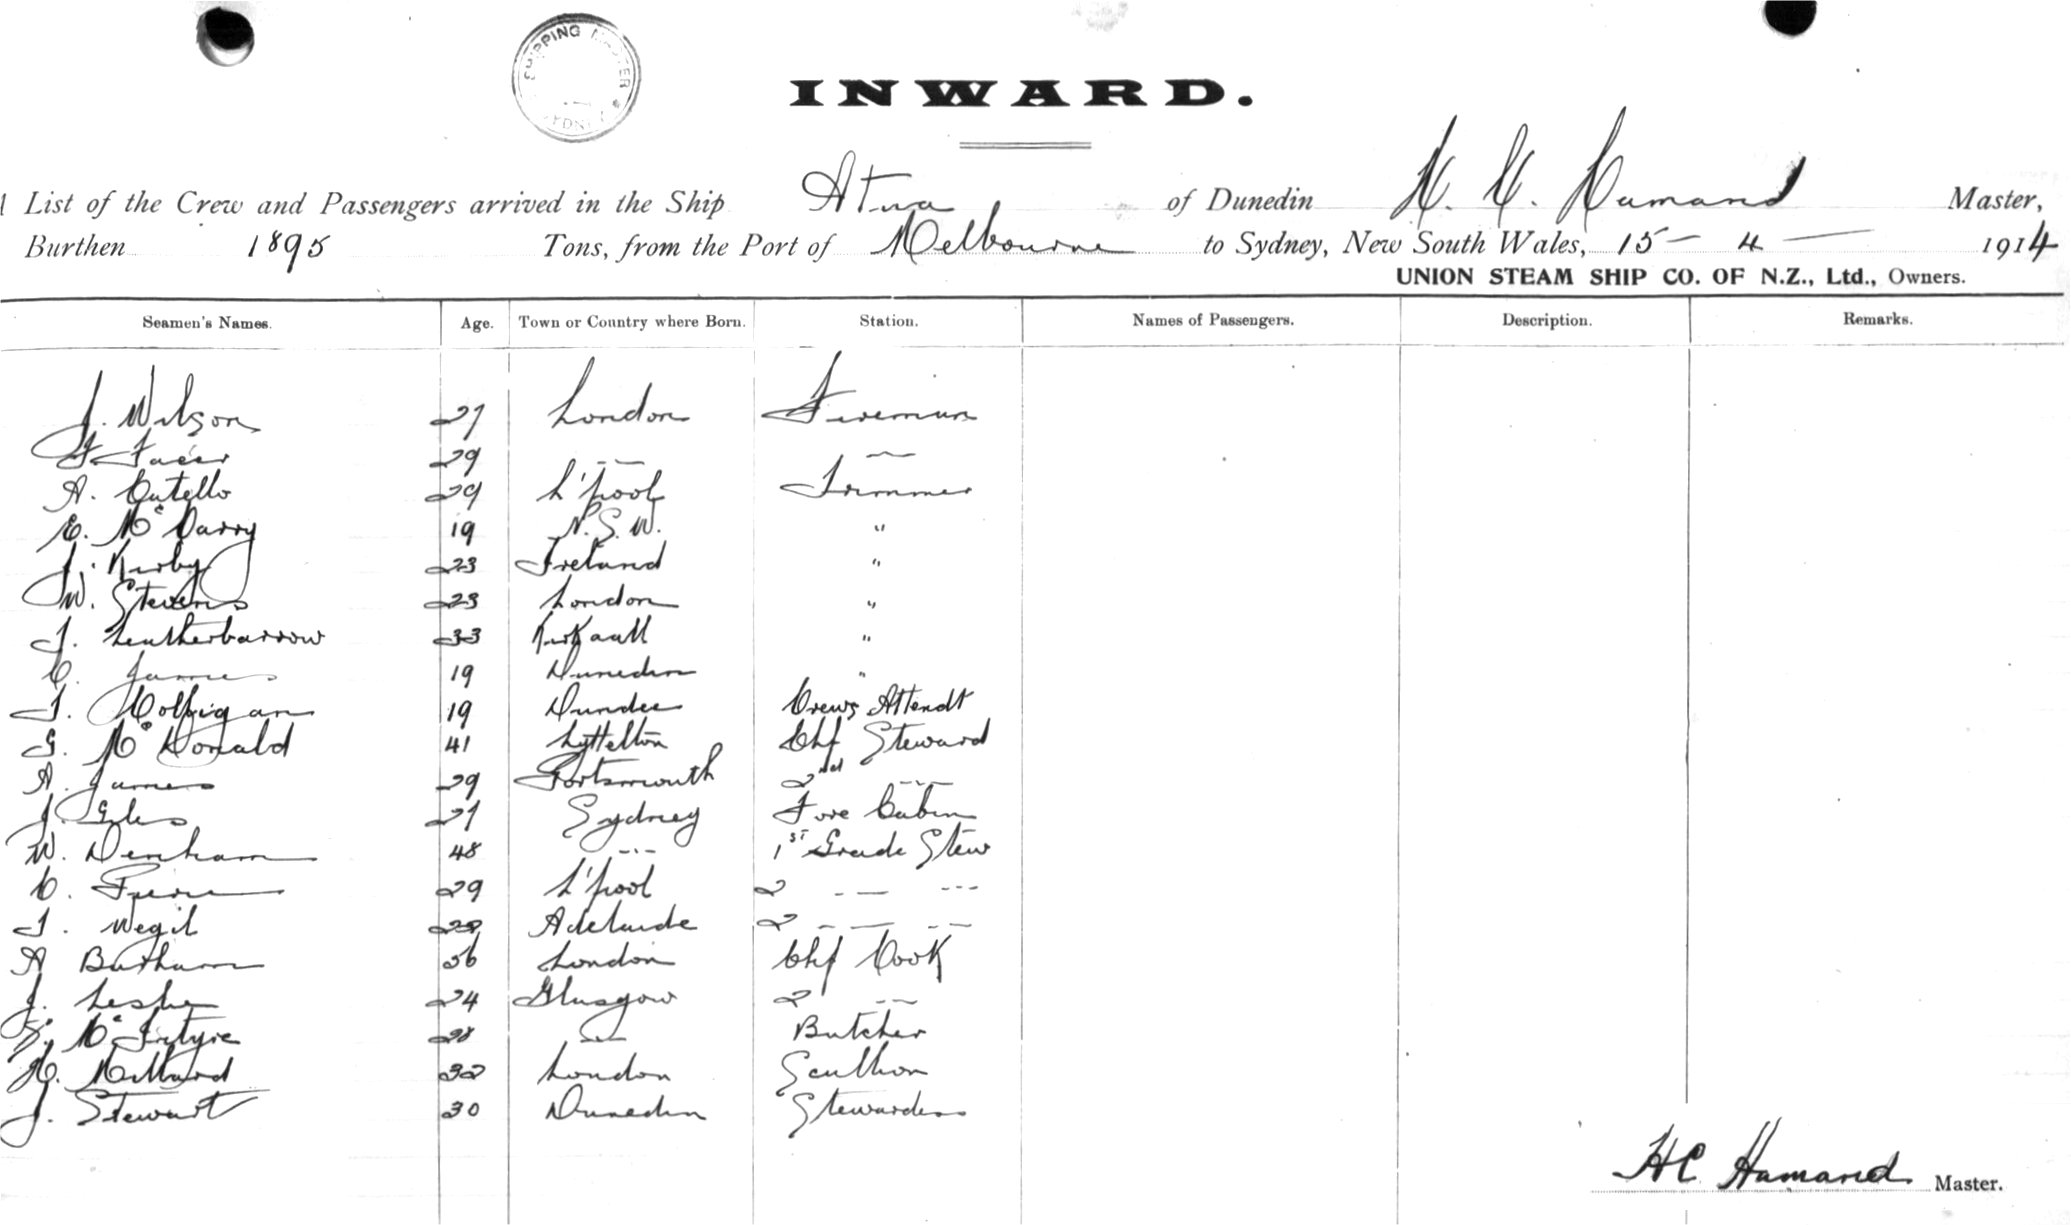 SHIPPING MASTER SYDNEY
INWARD.
List of the Crew and Passengers arrived in the Ship Atua of Dunedin H. C. Hamand Master,
Burthen 1895 Tons, from the Port of Melbourne to Sydney, New South Wales, 15 - 4 - 1914
UNION STEAM SHIP CO. OF N.Z., Ltd., Owners.
Seamen's Names. Age. Town or Country where Born. Station. Names of Passengers. Description. Remarks.
J. Wilson 27 London Fireman
F Facer 29 -- --
A. Cutello 29 L'pool Trimmer
E. McDarry 19 N.S.W. "
J. Kirby 23 Ireland "
W. Stevens 23 London "
J. Leatherbarrow 33 "
C. James 19 Dunedin "
T. 19 Dundee Crews Attendt
G. McDonald 41 Lyttelton Chf Steward
A. James 29 Portsmouth 2nd ---
J. Giles 27 Sydney Fore Cabin
W. Denham 48 --- 1st Grade Stew
C. 29 L'pool 2 -- ---
T. Adelaide 2 -- -- --
A London Chf Cook
J. Leslie 24 Glasgow 2 --
McIntyre 28 -- Butcher
H. Millard 32 London Scullion
J. Stewart 30 Dunedin Stewardess
HC Hamand Master.